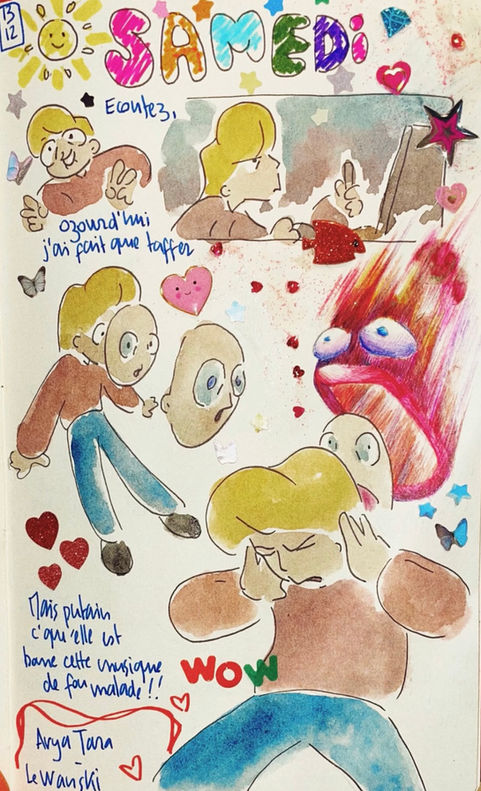 13
12
SAMEDi
Ecoutez,
ozourd'hui
j'ai fait que taffer
Mais putain
c'qu'elle est
bonne cette musique
de fou malade!!
WOW
Arya Tara
-
Lewanski